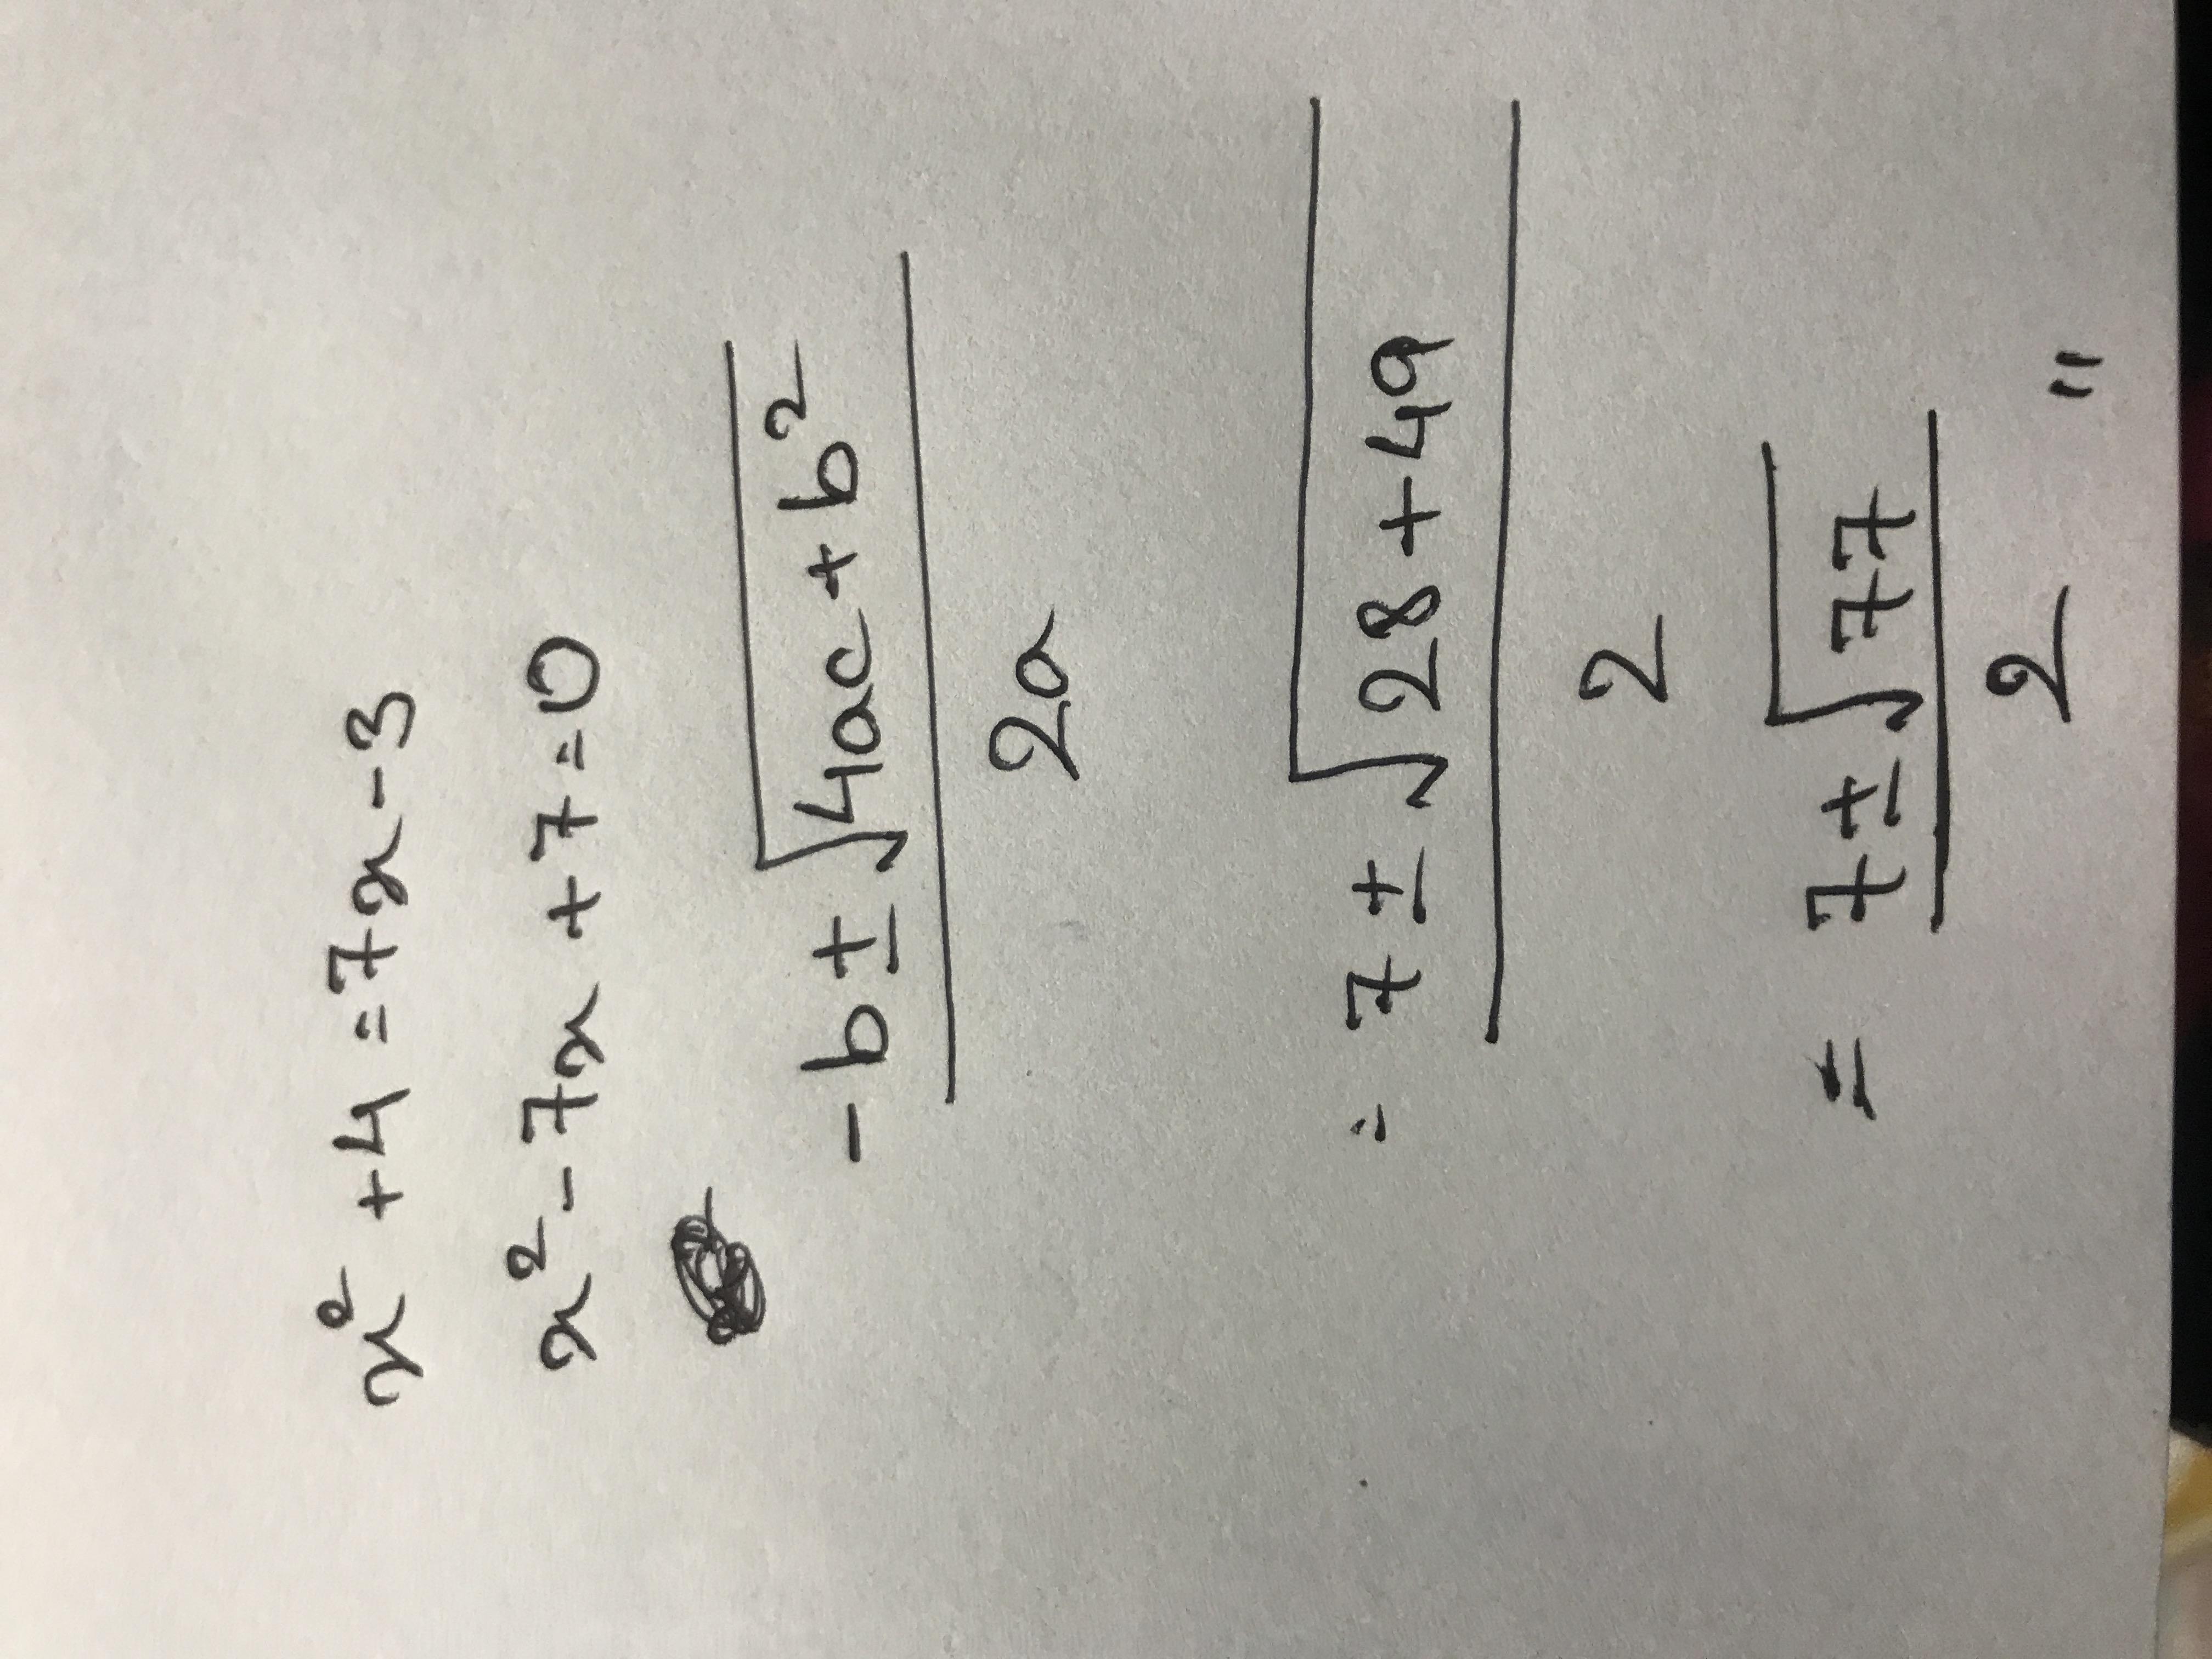 x² + 4 = 7x - 3
x² - 7x + 7 = 0
-b ± √4ac + b²
2a
= 7 ± √28 + 49
2
= 7 ± √77
2 "